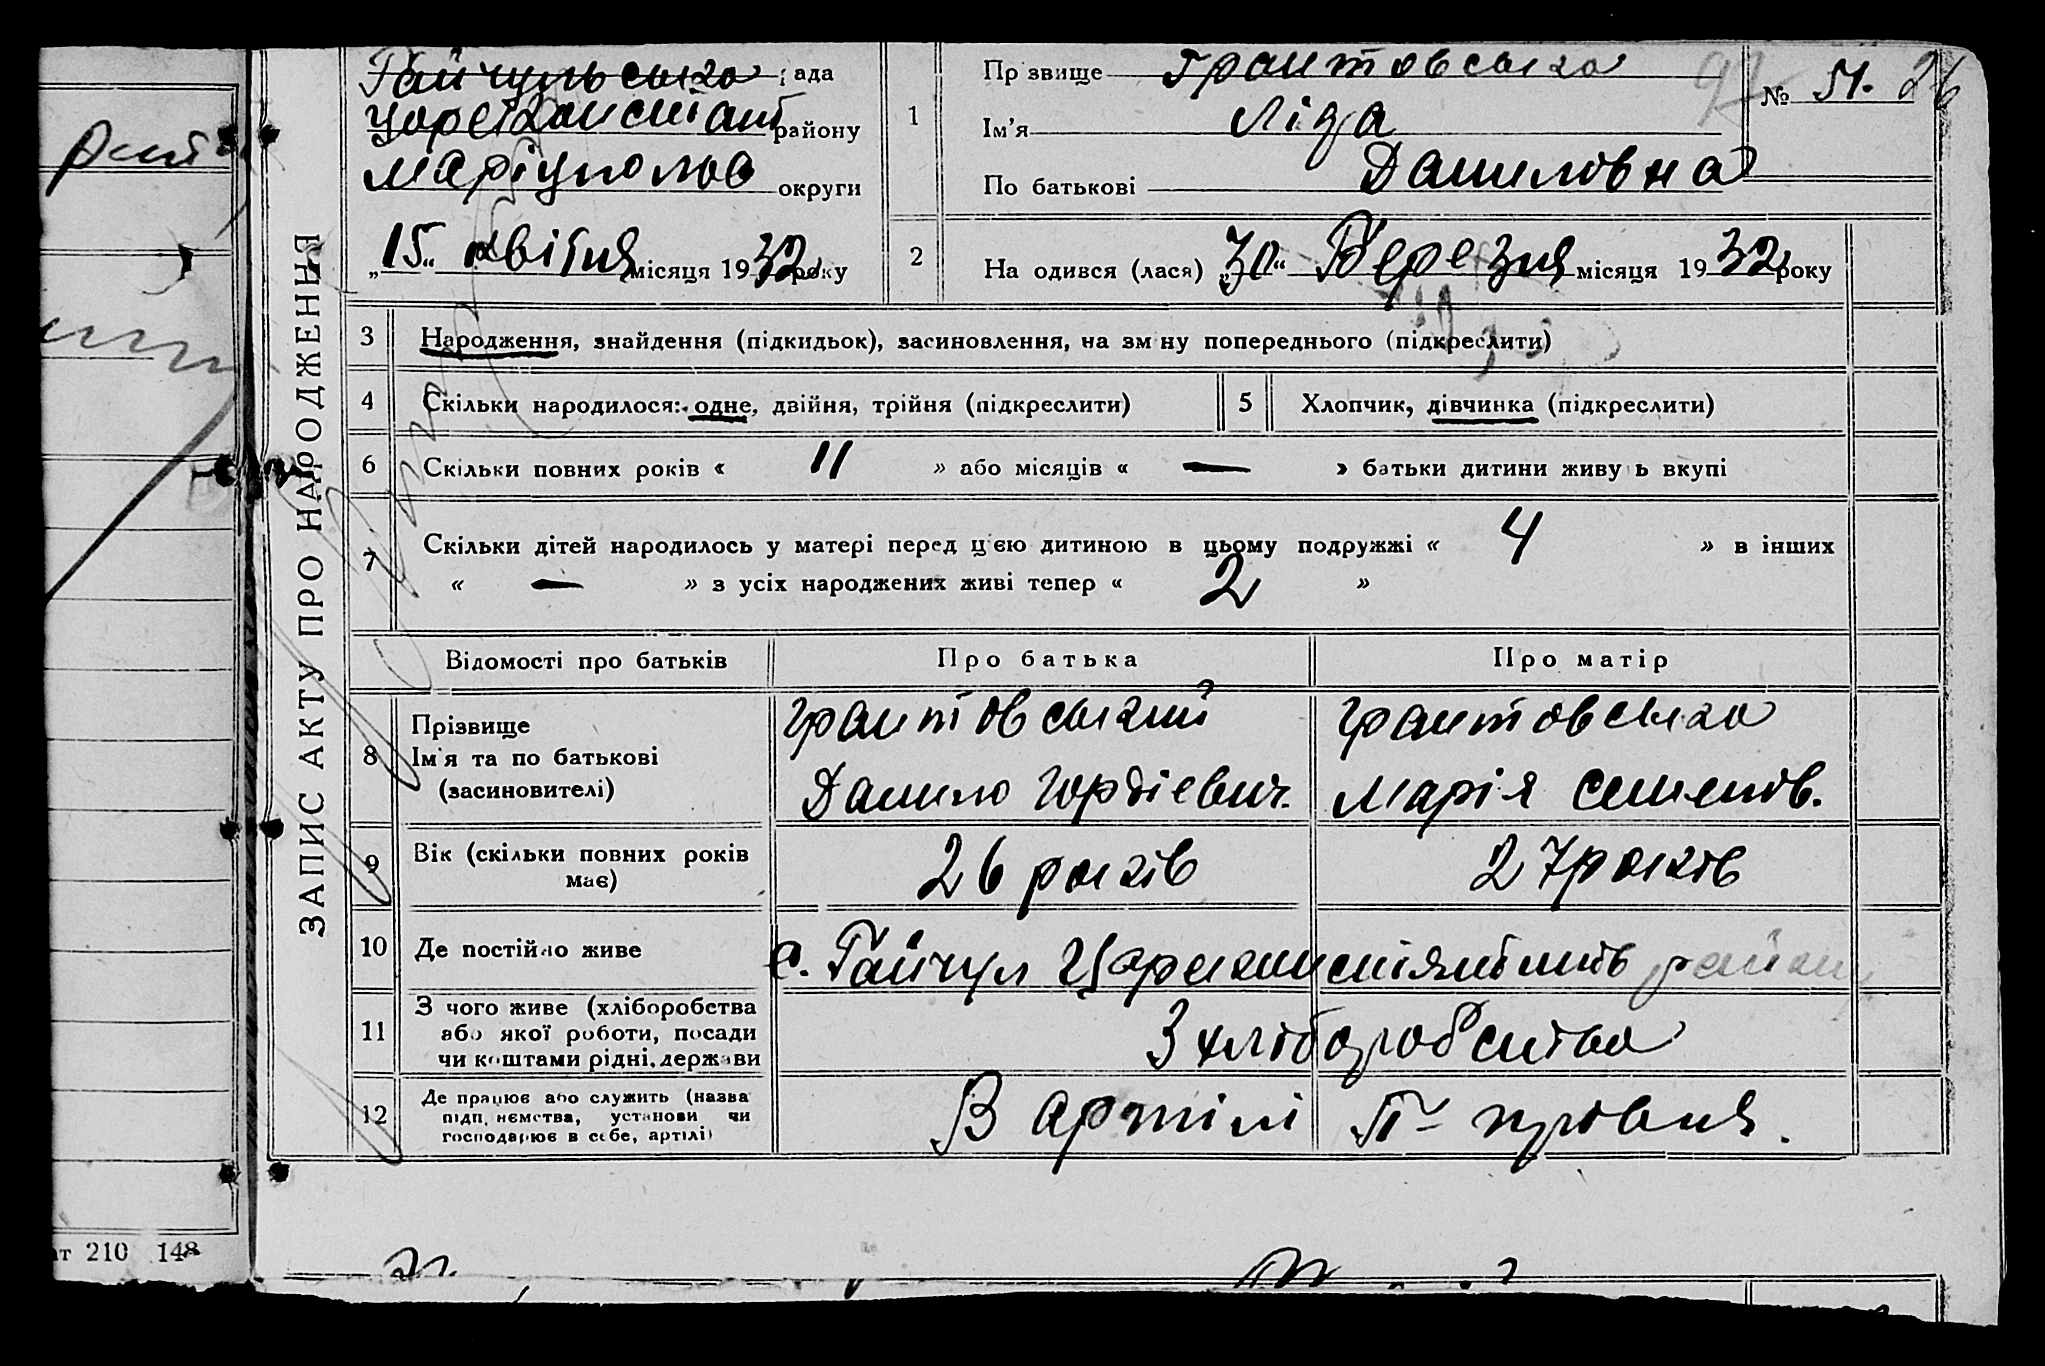 ЗАПИС АКТУ ПРО НАРОДЖЕННЯ
Гайчульська рада
району
Маріупольс округи
„15“ квітня місяця 1932 року
1
Прізвище Грантовська
Ім'я Ліза
По батькові Данилівна
№ 51. 26
2
На одився (лася) „30“ Березня місяця 1932 року
3 Народження, знайдення (підкидьок), засиновлення, на зм ну попереднього (підкреслити)
4 Скільки народилося: одне, двійня, трійня (підкреслити)
5 Хлопчик, дівчинка (підкреслити)
6 Скільки повних років « 11 » або місяців « — » батьки дитини живу ь вкупі
7 Скільки дітей народилось у матері перед ц'єю дитиною в цьому подружжі « 4 » в інших
« — » з усіх народжених живі тепер « 2 »
Відомості про батьків Про батька Про матір
8 Прізвище
Ім'я та по батькові
(засиновителі)
Грантовський
Данило Гордієвич.
Грантовська
Марія Семенів.
9 Вік (скільки повних років
має)
26 років 27 років
10 Де постійно живе с. Гайчул
11 З чого живе (хліборобства
або якої роботи, посади
чи коштами рідні, держави
З хліборобства
12 Де працює або служить (назва
підп. иємства, установи чи
господарює в себе, артілі)
В артілі
ат 210 148